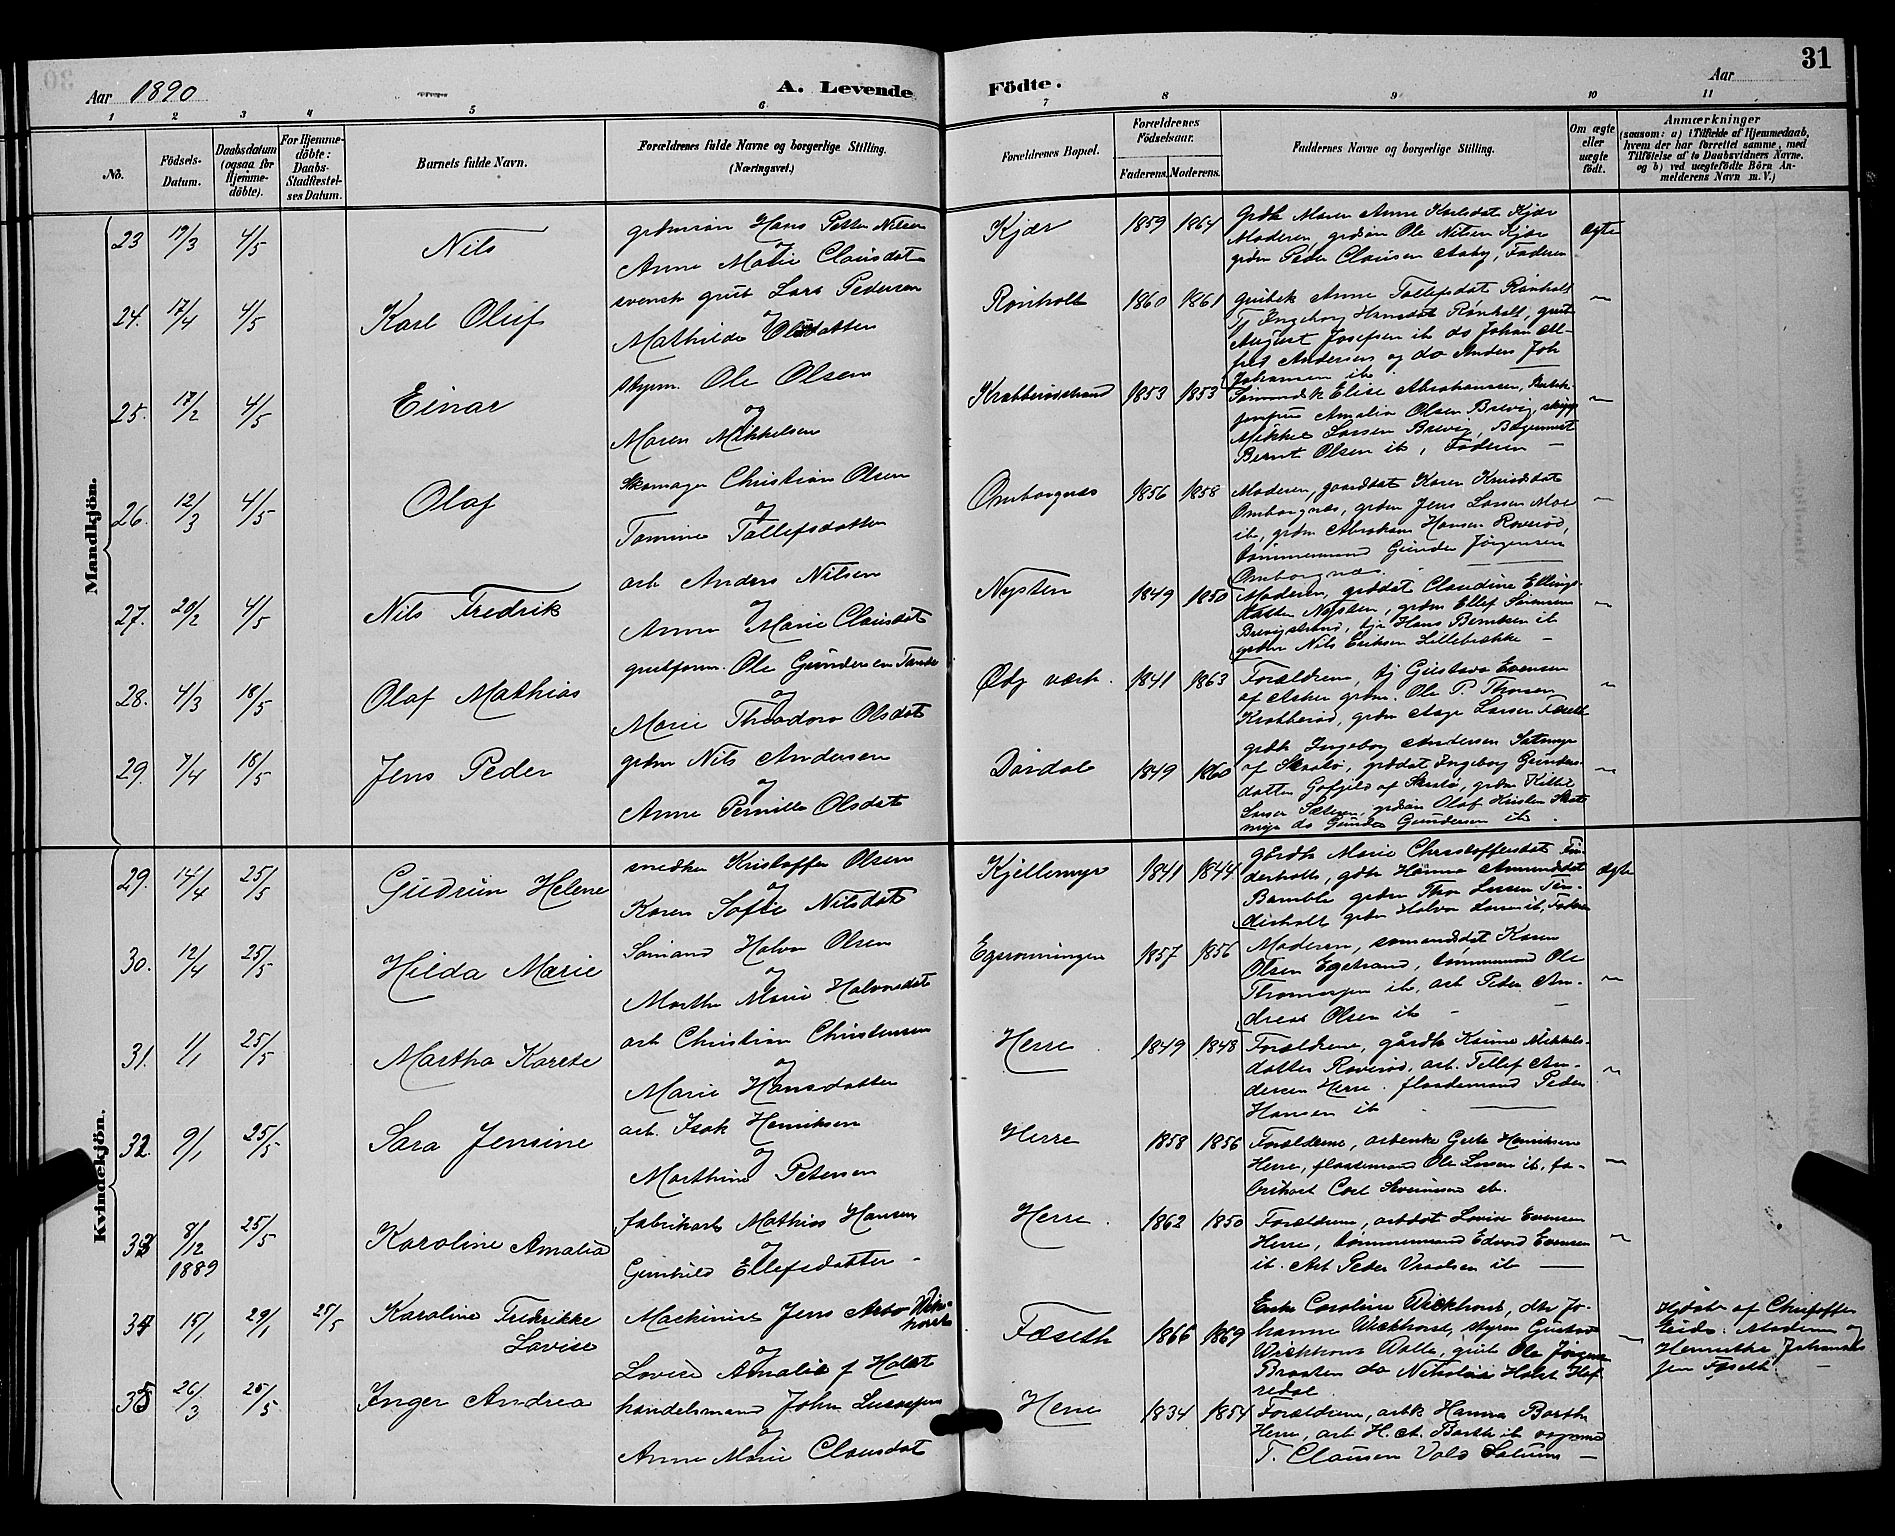 31
Aar 1890
A. Levende Födte.
Aar
1 2 3 4 5 6 7 8 9 10 11
No.
Födsels-Datum.
Daabsdatum (ogsaa for Hjemme-döbte).
For Hjemme-döbte: Daabs-Stadfæstel-ses Datum.
Barnets fulde Navn.
Forældrenes fulde Navne og borgerlige Stilling. (Næringsvei.)
Forældrenes Bopæl.
Forældrenes Födselsaar.
Faderens. Moderens.
Faddernes Navne og borgerlige Stilling.
Om ægte eller uægte födt.
Anmærkninger
(saasom: a) i Tilfælde af Hjemmedaab,
hvem der har forrettet samme, med
Tilföielse af to Daabsvidners Navne.
og b) ved uægtefödte Börn An-
melderens Navn m. V.)
Mandkjön.
23 19/3 4/5 Nils
Hans Petter Nilsen
og
Anne Marie Clausdat
Kjær 1859 1864
Maren Anne Karlsdat Kjær
Moderen, Ole Nilsen Kjær
Peder Clausen Aaby, Faderen
ægte
24. 17/4 4/5 Karl Oluf
svensk grub Lars Pedersen
og
Mathilde Olsdatter
Rönholt 1860 1861
Anne Tollefsdat Rönholt
Ingeborg Hansdat Rönholt, grub
August Josefsen ib do Johan Al-
fred Andersen og do Anders Joh
Johansen ib
25. 17/2 4/5 Einar
Ole Olsen
og
Maren Mikkelsen
Krabberödstrand 1853 1853
Elise Abrahamsen,
Amalia Olsen Brevig,
Mikkel Larsen Brevig,
Bernt Olsen ib, Faderen
26. 12/3 4/5 Olaf
Skomager Christian Olsen
og
Tomine Tollefsdatter
Omborgnæs 1856 1858
Moderen, gaarddat Karen Knudsdat
Omborgnæs, grdm Jens Larsen Moe
ib, grdm Abraham Hansen Roveröd,
tömmermand Gunder Jörgensen
Omborgnæs.
27. 20/2 4/5 Nils Fredrik
arb Anders Nilsen
og
Anne Marie Clausdat
Nysten 1849 1850
Moderen, grddat Claudine Ellings-
datter Nysten, grdm Ellef Sörensen
Brevigstrand, Hans Bentsen ib
Nils Eriksen Lillebække
28. 4/3 18/5 Olaf Mathias
grubform. Ole Gundersen
og
Marie Theodora Olsdat
Ödg værk. 1841 1863
Forældrene, tj Gustava Evensen
af Asker grdm. Ole P. Thorsen
Krabberöd, grdm Aage Larsen
29. 7/4 18/5 Jens Peder
grdm Nils Andersen
og
Anne Pernille Olsdat
Dördal 1849 1860
Ingeborg Andersen
grddat Ingeborg Gunders-
datter
Olaf Kristen
do Gunder Gundersen ib
Kvindekjön.
29. 14/4 25/5 Gudrun Helene
snedker Kristoffer Olsen
og
Karen Sofie Nilsdat
Kjellemyr 1841 1844
Marie Christoffersdat Fin-
derholt, Hanna Amundsdat
Bamble grdm Thor Larsen Fin-
derholt grdm Halvor Larsen ib, Faderen
ægte
30. 12/4 25/5 Hilda Marie
Sömand Halvor Olsen
og
Marthe Marie Halvorsdat
Egsrönningen 1857 1856
Moderen, sömandsdat Karen
Olsen Egstrand, tömmermand Ole
Thomassen ib, arb Peder An-
dreas Olsen ib
31. 1/1 25/5 Martha Karete
arb Christian Christensen
og
Marie Hansdatter
Herre 1849 1848
Forældrene, Mikkels-
datter Roveröd, arb. Tellef An-
dersen Herre. flaademand Peder
Hansen ib
32. 9/1 25/5 Sara Jensine
arb. Isak Henriksen
og
Marthine Petersen
Herre 1858 1856
Forældrene, arbenke Henriksen
Herre, flaademand Ole Larsen ib, fa-
brikarb Carl ib.
33 8/12 1889 25/5 Karoline Amalia
fabrikarb Mathias Hansen
og
Gunhild Ellefsdatter
Herre. 1862 1850
Forældrene, arbdat Lovise Evensen
Herre, tömmermand Edvard Evensen
ib. Arb Peder ib
34 15/1 29/1 25/5 Karoline Fredrikke Lovise
Maskinist Jens Wirkhorst
og
Lovise Amalie f Holst
Fæseth 1866 1869
Enke Caroline Wirkhorst, Jo-
hanne Wirkhorst, Gustav
Wirkhorst Valle, grub Ole Jörgen
Braaten do Nikolai Holst
Hjdöbt af Christoffer
Moderen og
Henrikke Johannes-
sen Fæseth
35 26/3 25/5 Inger Andrea
handelsmand John
og
Anne Marie Clausdat
Herre 1834 1854
Forældrene, Hanna Barth
Herre, arb H. A. Barth ib
T. Clausen Vold